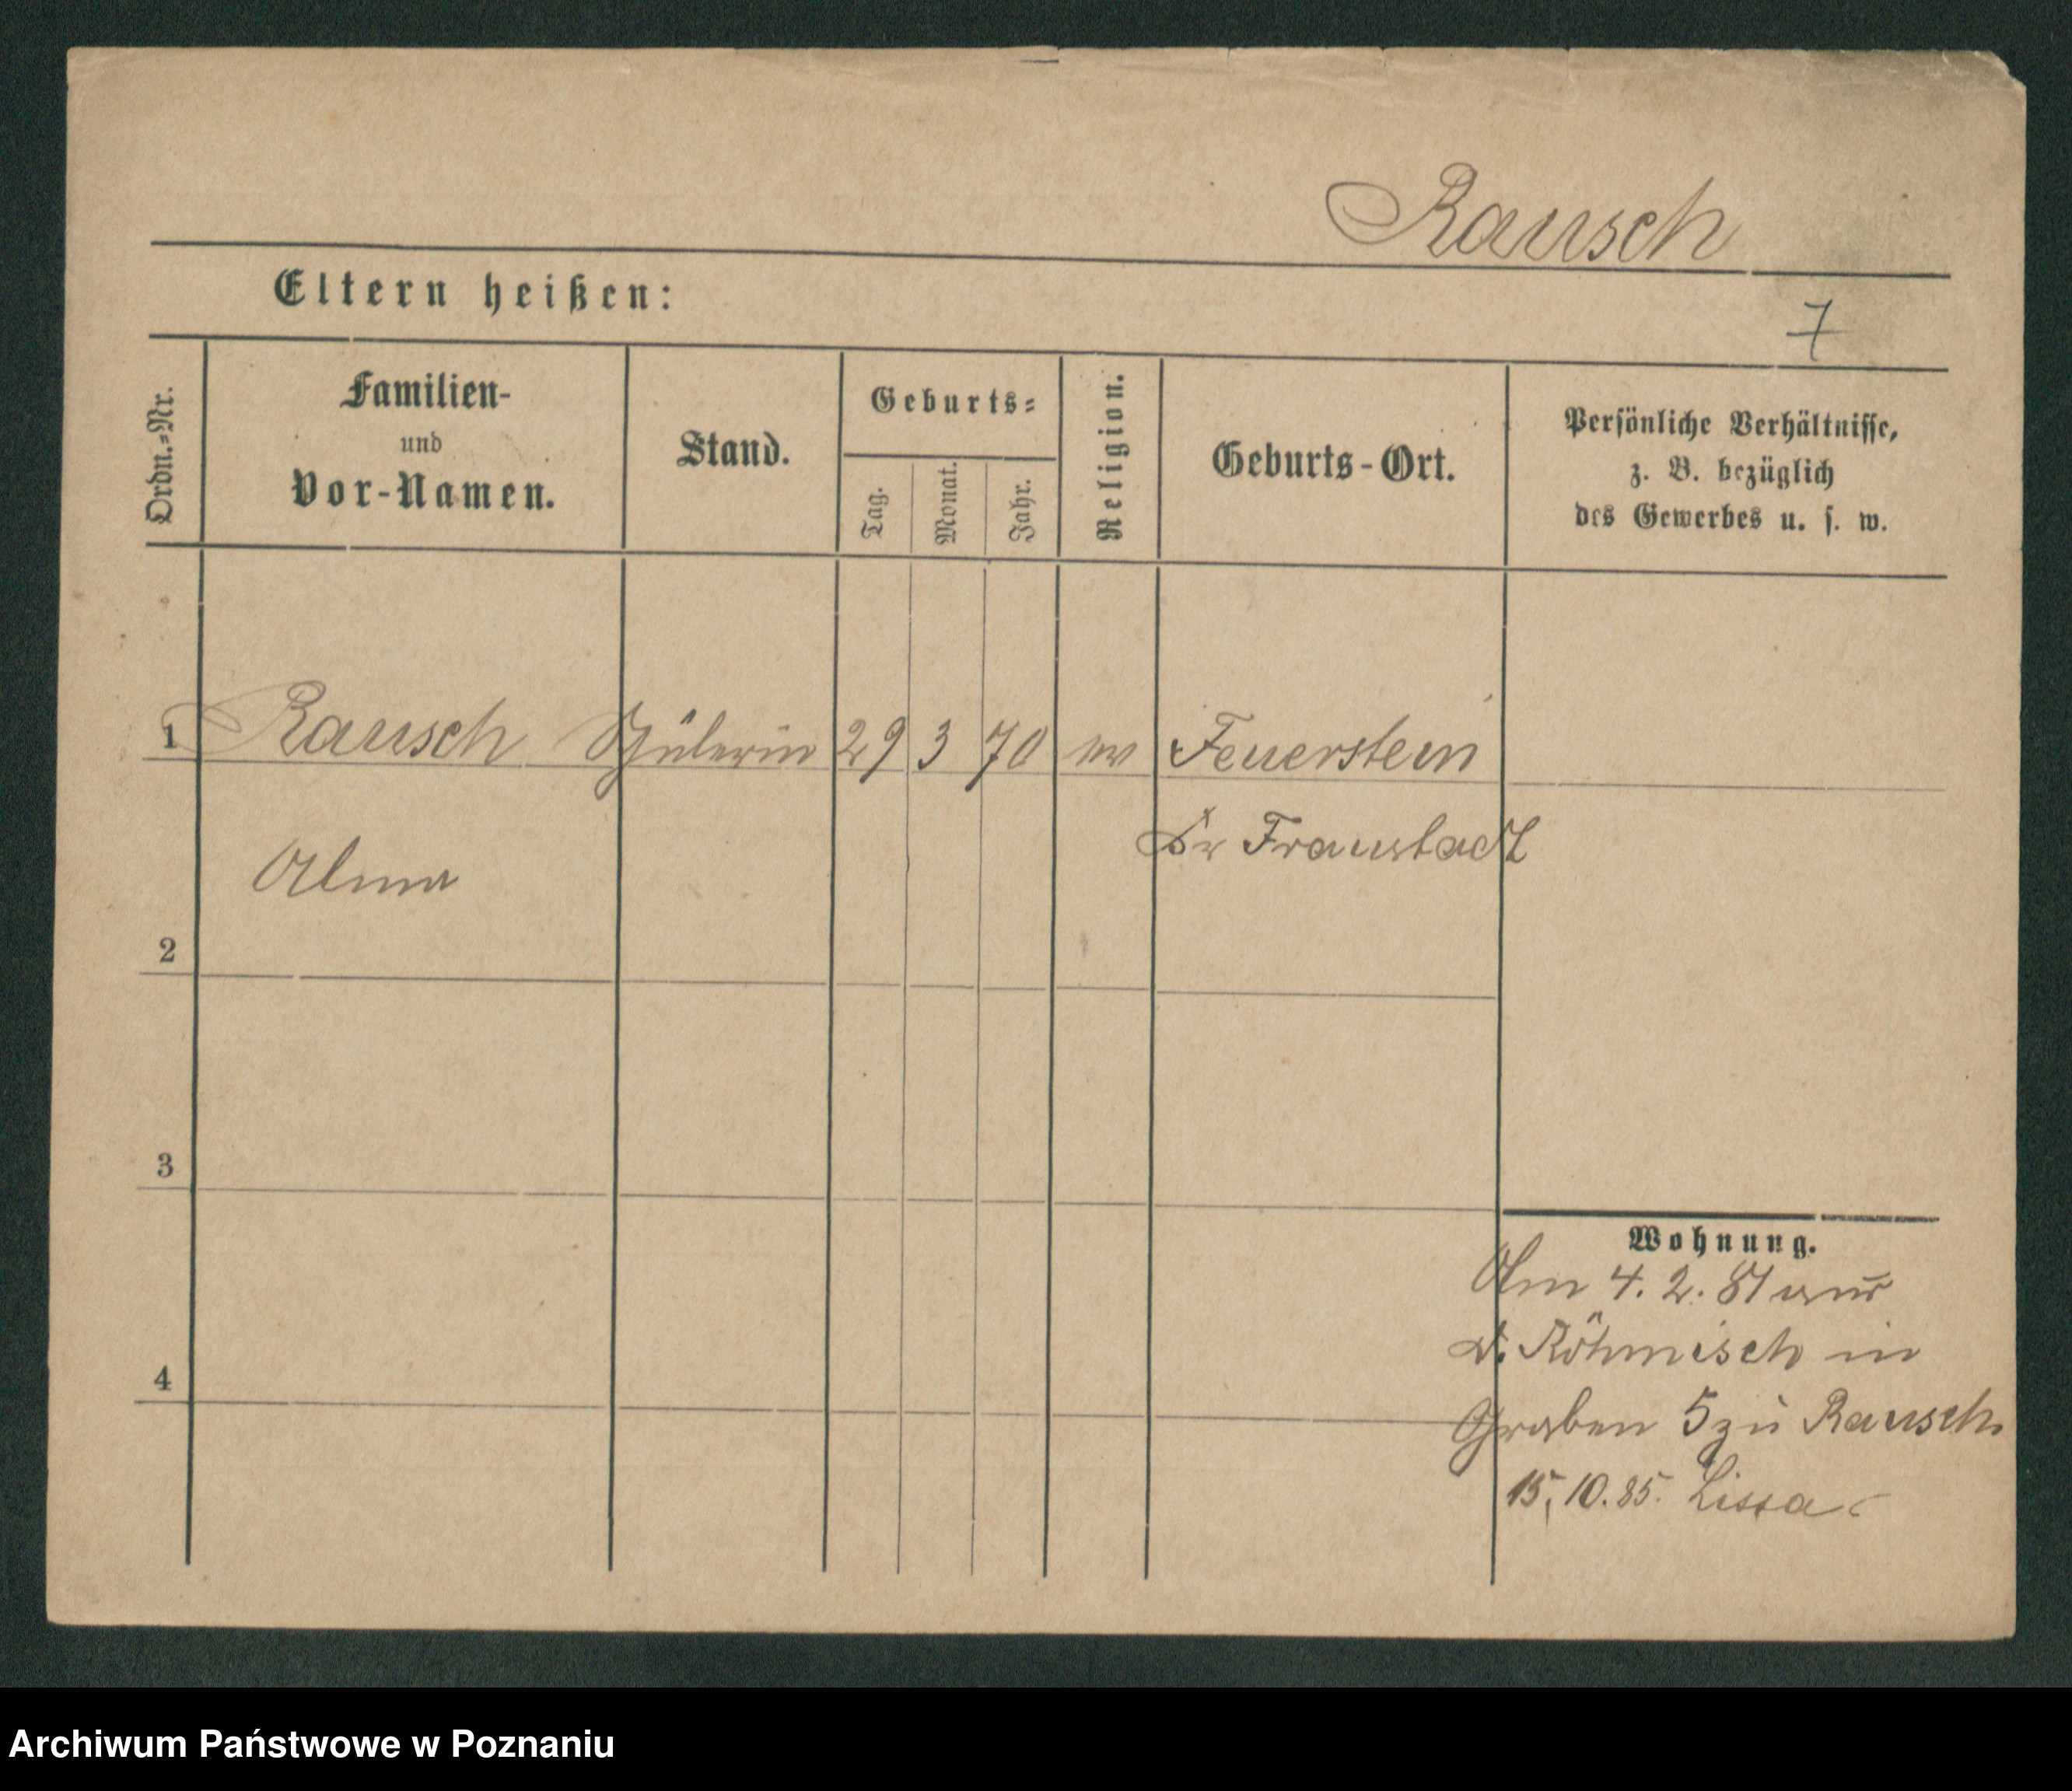 Rausch
Eltern heißen:
7
Ordn.-Nr.
Familien-
und
Vor-Namen.
Stand.
Geburts-
Tag.
Monat.
Jahr.
Religion.
Geburts-Ort.
Persönliche Verhältnisse,
z. B. bezüglich
des Gewerbes u. s. w.
1 Rausch Schülerin 29 3 70 ev Feuerstein
Kr Fraustadt
Alma
2
3
4
Wohnung.
Am 4. 2. 81
v. Röhmisch in
Graben 5 zu Rausch.
15. 10. 85. Lissa
Archiwum Państwowe w Poznaniu